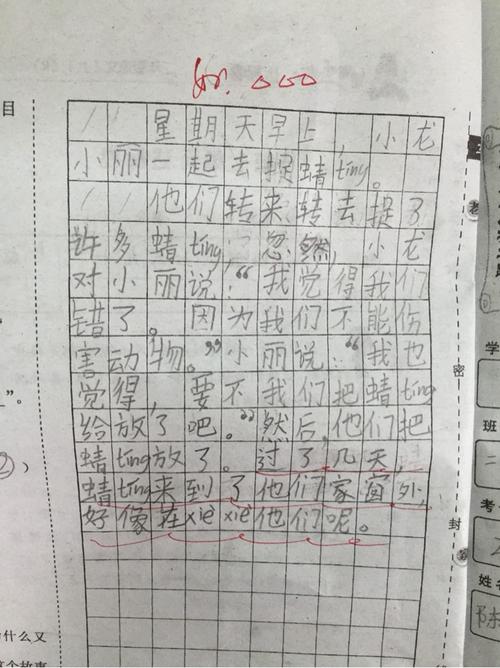 好.
目
//星期天早上,小龙
小丽一起去捉蜻tíng。
//他们转来转去捉了
许多蜻tíng,忽然,小龙
对小丽说:“我觉得我们
错了。因为我们不能伤
害动物。”小丽说:“我也
觉得,要不我们把蜻tíng
给放了吧。”然后,他们把
蜻tíng放了。过了几天,
蜻tíng来到了他们家窗外,
好像在xièxiè他们呢。
”。
②)
为什么又
这个故事
学
密
班
二
考
封
姓名
陈